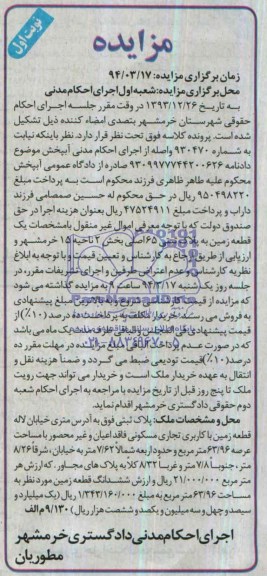 نوبت اول
مزایده
زمان برگزاری مزایده: ۹۴/۰۳/۱۷
محل برگزاری مزایده: شعبه اول اجرای احکام مدنی
به تاریخ ۱۳۹۳/۱۲/۲۶ در وقت مقرر جلسه اجرای احکام
حقوقی شهرستان خرمشهر بتصدی امضاء کننده ذیل تشکیل
شده است. پرونده کلاسه فوق تحت نظر قرار دارد. نظر باینکه نیابت
به شماره ۹۳۰۴۷۰ واصله از اجرای احکام مدنی آبپخش موضوع
دادنامه ۹۳۰۹۹۷۷۷۴۴۲۰۰۶۲۶ صادره از دادگاه عمومی آبپخش
محکوم علیه طاهر ظاهری فرزند محکوم است به پرداخت مبلغ
۹۵۰۴۹۸۲۲۰ ریال در حق محکوم له حسین صمصامی فرزند
داراب و پرداخت مبلغ ۴۷۵۲۴۹۱۱ ریال بعنوان هزینه اجرا در حق
صندوق دولت که با توجه به اموال غیر منقول بامشخصات یک
قطعه زمین به پلاک اصلی بخش ناحیه ۱۵ خرمشهر و
ارزیابی از طریق ارجاع به کارشناس و تعیین قیمت و با توجه به ابلاغ
نظریه کارشناس و عدم اعتراض طرفین و اجرای تشریفات مقرر، در
جلسه روز یک شنبه ۹۴/۳/۱۷ ساعت به مزایده گذاشته می شود
که مزایده از قیمت شروع و به بالاترین مبلغ پیشنهادی
به فروش می رسد. خریدار مکلف به پرداخت ده درصد (۱۰٪) از
قیمت پیشنهادی فی المجلس و الباقی ظرف مدت یک ماه می باشد
که در صورت عدم پرداخت در مهلت مقرر ده
درصد (۱۰٪) قیمت تودیعی ضبط می گردد و ضمناً هزینه نقل و
انتقال به عهده خریدار ملک است و خریدار می تواند جهت رویت
ملک تا پنج روز قبل از تاریخ مزایده با مراجعه به اجرای احکام شعبه
دوم حقوقی دادگستری خرمشهر اقدام نماید.
محل و مشخصات ملک: پلاک ثبتی فوق به آدرس متری خیابان لاله
قطعه زمین با کاربری تجاری مسکونی فاقد اعیان و غیر محصور با مساحت
عرصه ۶۳/۹۶ متر مربع و حدود اربعه شمالاً ۷/۶۲ متر به خیابان، شرقاً ۸/۲۶
متر، جنوباً ۷/۸ متر و غرباً ۸/۳۲ کلاً به پلاک های مجاور. که ارزش هر
متر مربع ۲۱/۰۰۰/۰۰۰ ریال و ارزش ششدانگ قطعه زمین مورد نظر به
مساحت ۶۳/۹۶ متر مربع به مبلغ ۱/۳۴۳/۱۶۰/۰۰۰ ریال (یک میلیارد و
سیصد و چهل و سه میلیون و یکصد و شصت هزار ریال) ۹/۱۳۰ م الف
اجرای احکام مدنی دادگستری خرمشهر
مطوریان